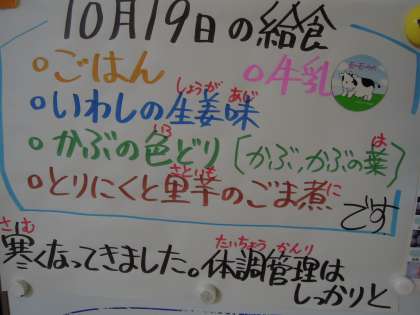 10月19日の給食
○ごはん ○牛乳
しょうが あじ
○いわしの生姜味
いろ は
○かぶの色どり(かぶ,かぶの葉)
さといも に
○とりにくと里芋のごま煮
です
さむ たいちょう かんり
寒くなってきました。体調管理は
しっかりと